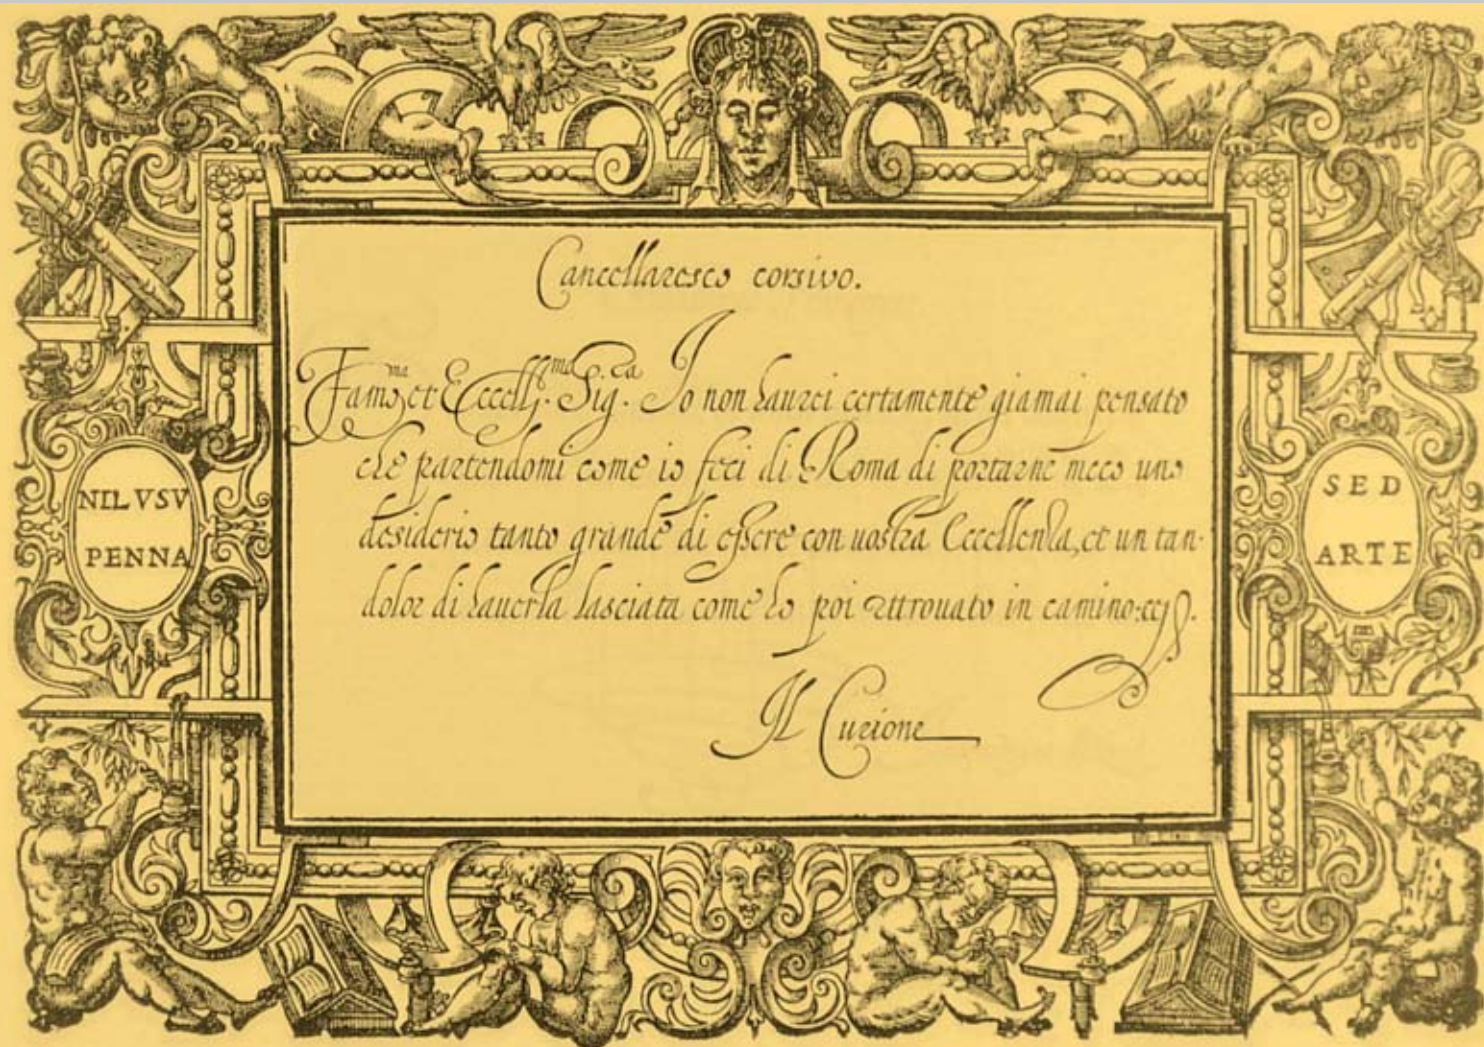 Cancellaresco corsivo.
Fam.ma et Eccell.ma Sig.ra Io non haurei certamente giamai pensato
che partendomi come io feci di Roma di portarne meco uno
desiderio tanto grande di essere con uostra Eccellenza, et un tan-
dolor di hauerla lasciata come ho poi ritrouato in camino:
Il Curione
NIL VSV
PENNA
SED
ARTE